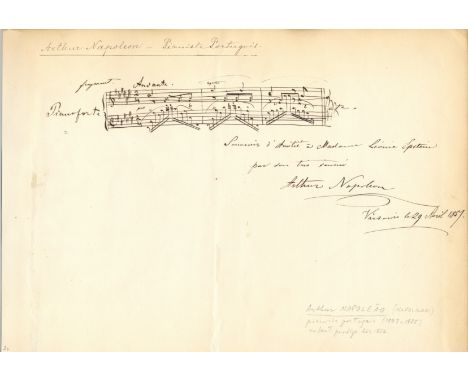 Arthur Napoleon — Pianiste Portugais.
fragment Andante.
Pianoforte
Souvenir d'Amitié à Madame Leonie
par son très
Arthur Napoleon
Varsovie le 29 Avril 1857.
Arthur NAPOLEÃO (NAPOLEON)
pianiste portugais
enfant prodige